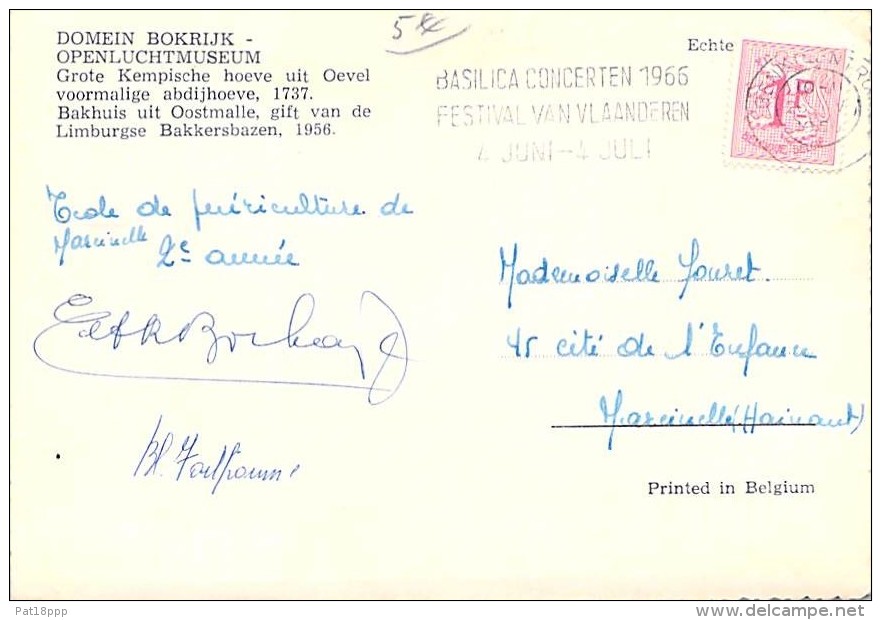 DOMEIN BOKRIJK -
OPENLUCHTMUSEUM
Grote Kempische hoeve uit Oevel
voormalige abdijhoeve, 1737.
Bakhuis uit Oostmalle, gift van de
Limburgse Bakkersbazen, 1956.
Echte
BASILICA CONCERTEN 1966
FESTIVAL VAN VLAANDEREN
4 JUNI - 4 JULI
1F
Ecole de puériculture de
Marcinelle 2e année
Mademoiselle Jouret.
45 cité de l'Enfance
Marcinelle (Hainaut)
Printed in Belgium
Pat18ppp
www.delcampe.net